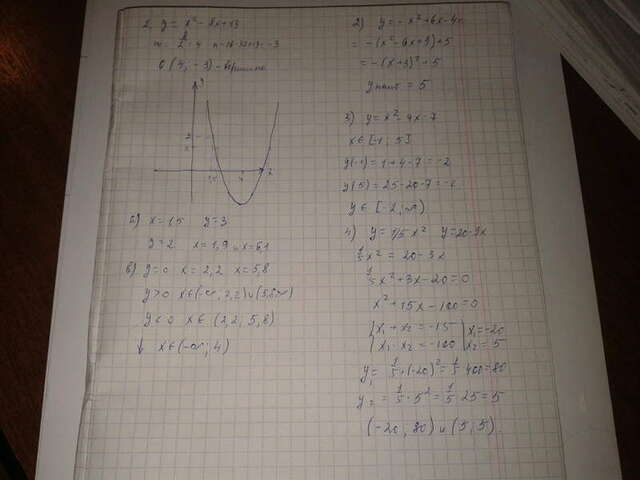 1. y = x² - 8x + 13
m = 8/2 = 4 n = 16 - 32 + 13 = -3
O (4; -3) - вершина
y
x
а) x = 1,5 y = 3
y = 2 x = 1,9 и x = 6,1
в) y = 0 x = 2,2 x = 5,8
y > 0 x ∈ (-∞; 2,2) ∪ (5,8; ∞)
y < 0 x ∈ (2,2; 5,8)
↓ x ∈ (-∞; 4)
2) y = -x² + 6x - 4
= -(x² - 6x + 9) + 5
= -(x + 3)² + 5
y наиб = 5
3) y = x² - 4x - 7
x ∈ [-1; 5]
y(-1) = 1 + 4 - 7 = -2
y(5) = 25 - 20 - 7 = -2
4) y = 1/5 x² y = 20 - 3x
1/5 x² = 20 - 3x
1/5 x² + 3x - 20 = 0
x² + 15x - 100 = 0
x₁ + x₂ = -15 x₁ = -20
x₁ · x₂ = -100 x₂ = 5
y₁ = 1/5 · (-20)² = 1/5 400 = 80
y₂ = 1/5 · 5² = 1/5 25 = 5
(-20; 80) и (5; 5).